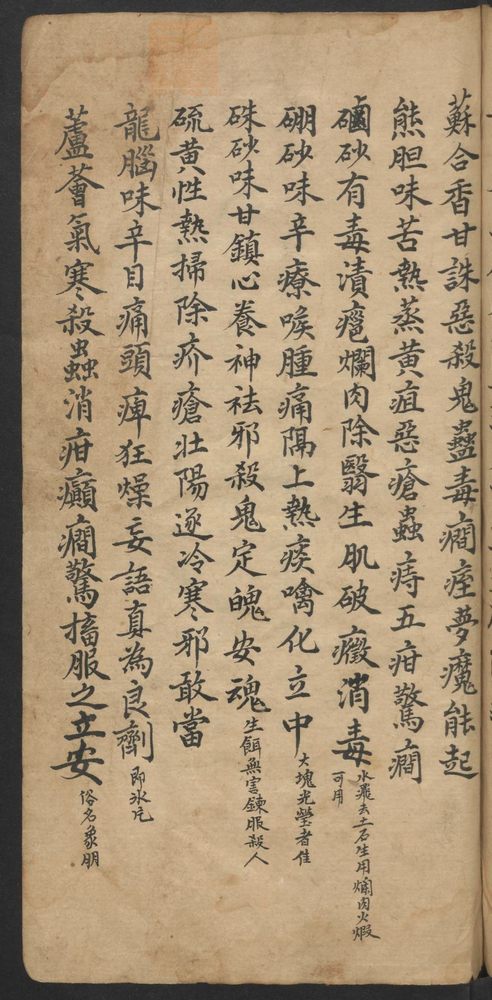 蘇合香甘誅惡殺鬼蠱毒癇痓夢魘能起
熊胆味苦熱蒸黄疸惡瘡蟲痔五疳驚癇
硇砂有毒潰癰爛肉除翳生肌破癥消毒水飛去土石生用爛肉火煆可用
硼砂味辛療喉腫痛隔上熱痰噙化立中大塊光瑩者佳
硃砂味甘鎮心養神祛邪殺鬼定魄安魂生餌無害鍊服殺人
硫黄性熱掃除疥瘡壯陽逐冷寒邪敢當
龍腦味辛目痛頭痺狂燥妄語真為良劑即氷片
蘆薈氣寒殺蟲消疳癲癇驚搐服之立安俗名象胆